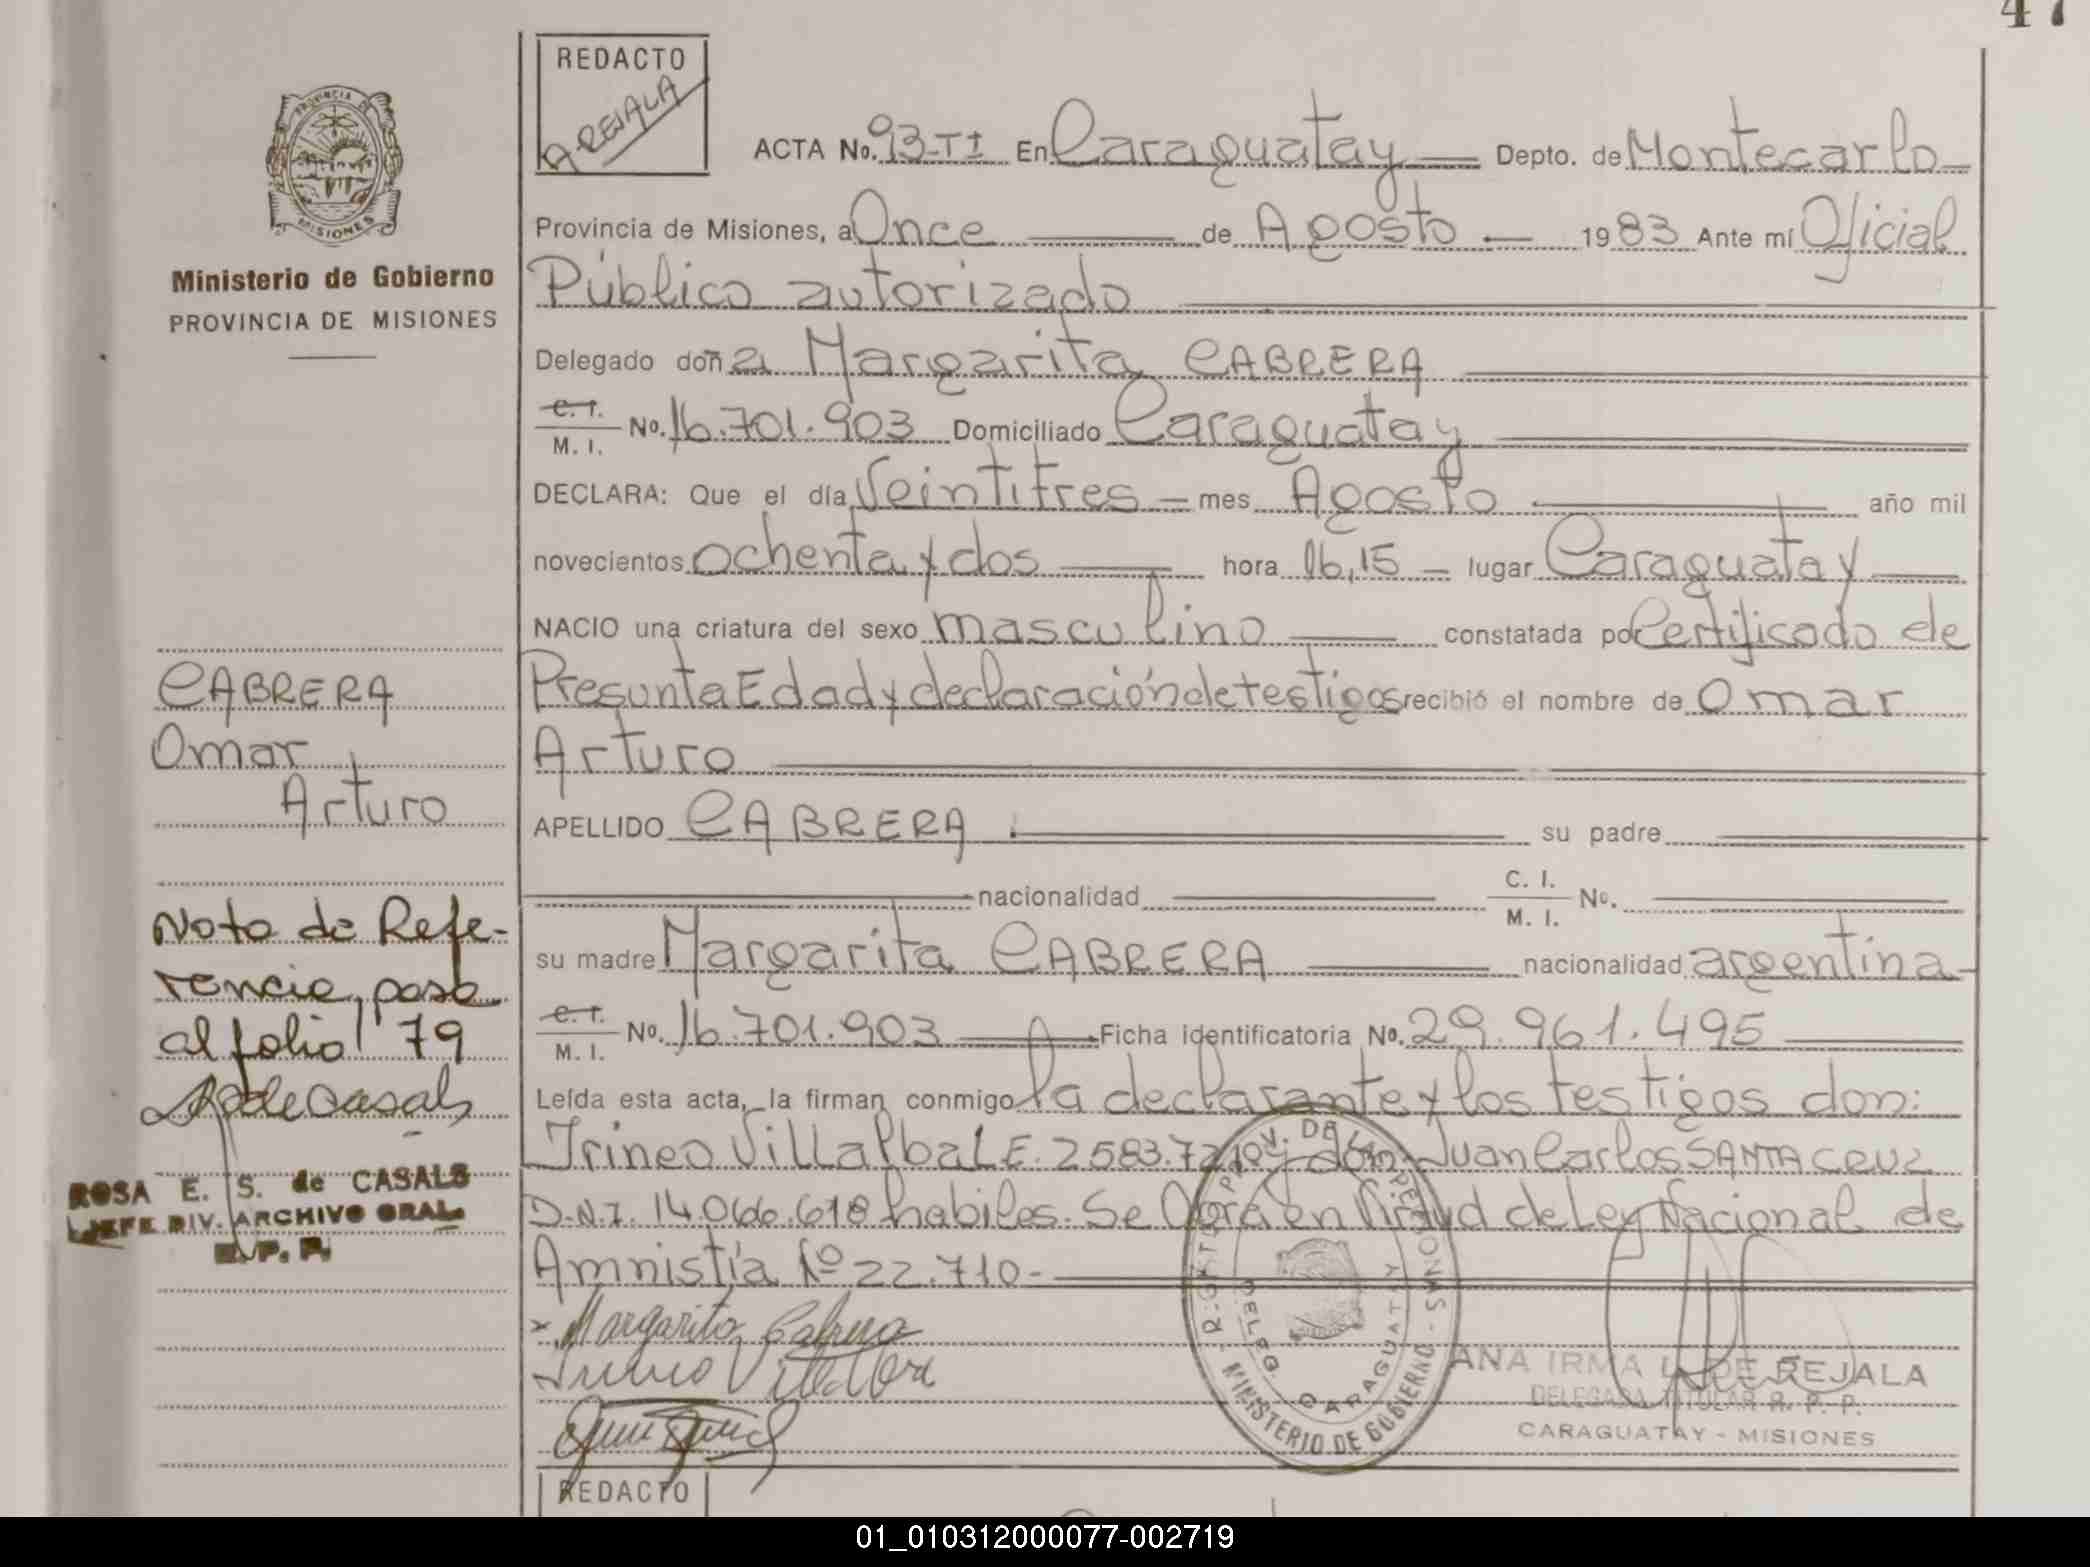 47
REDACTO
A. REJALA
PROVINCIA DE
MISIONES
Ministerio de Gobierno
PROVINCIA DE MISIONES
ACTA No. 93-TI En Caraguatay Depto. de Montecarlo
Provincia de Misiones, a Once de Agosto 1983 Ante mí Oficial
Público autorizado
Delegado doña Margarita CABRERA
C. I.
M. I. No. 16.701.903 Domiciliado Caraguatay
DECLARA: Que el día Veintitres mes Agosto año mil
novecientos ochenta y dos hora 16,15 lugar Caraguatay
NACIO una criatura del sexo masculino constatada por Certificado de
Presunta Edad y declaración de testigos recibió el nombre de Omar
Arturo
APELLIDO CABRERA su padre
nacionalidad C. I.
M. I. No.
su madre Margarita CABRERA nacionalidad argentina
C. I.
M. I. No. 16.701.903 Ficha identificatoria No. 29.961.495
Leída esta acta, la firman conmigo la declarante y los testigos don:
Irineo Villalba L.E. 2583.721 y don Juan Carlos SANTA CRUZ
D.N.I. 14.066.618 habiles. Se Obra en Virtud de Ley Nacional de
Amnistía Nº 22.710-
Margarita Cabrera
Irineo Villalba
REGISTRO PROV. DE LAS PERSONAS - MINISTERIO DE GOBIERNO -
DELEG. CARAGUATAY
ANA IRMA L. DE REJALA
DELEGADA TITULAR R. P. P.
CARAGUATAY - MISIONES
REDACTO
CABRERA
Omar
Arturo
Nota de Refe-
rencia, pasa
al folio 79
ROSA E. S. de CASALS
JEFE DIV. ARCHIVO GRAL.
R. P. P.
01_010312000077-002719